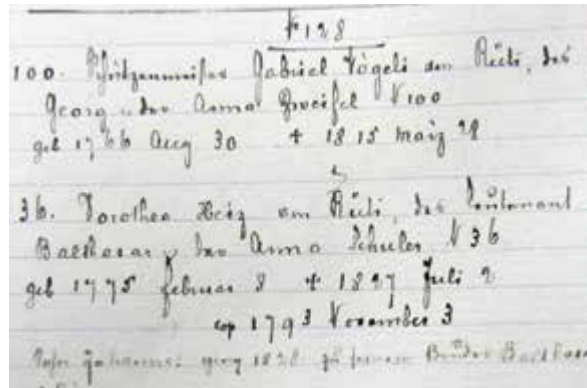 № 128
100. Schützenmeister Gabriel Vögeli von Rüti, des
Georg u der Anna Zweifel N 100
geb 1766 Aug 30 + 1815 März 28
36. Dorothea Heiz von Rüti, des Leutenant
Balthasar u der Anna Schuler N 36
geb 1775 Februar 8 + 1827 Juli 2
cop 1793 November 3
Johannes ging 1828 zu seinem Bruder Balthasar